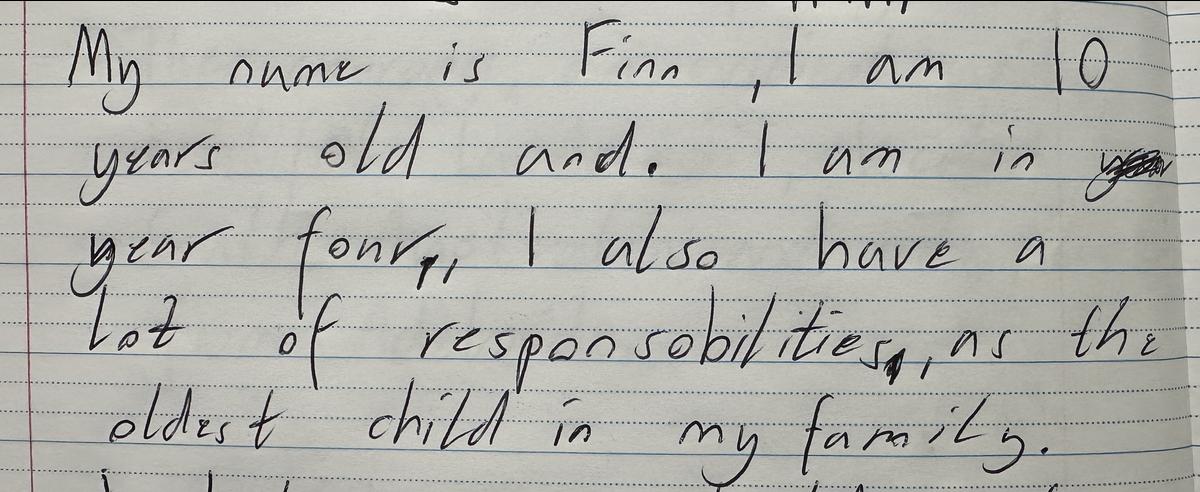 My name is Finn, I am 10
years old and. I am in
year four,, I also have a
Lot of responsobilities,, as the
oldest child in my family.